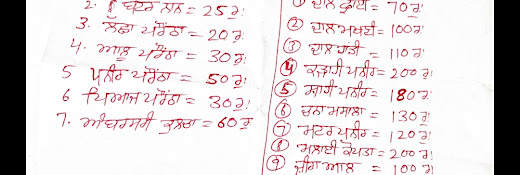 2. ਬਟਰ ਨਾਨ = 25 ਰੁ:
3. ਲੱਛਾ ਪਰੌਂਠਾ = 20 ਰੁ:
4. ਆਲੂ ਪਰੌਂਠਾ = 30 ਰੁ:
5 ਪਨੀਰ ਪਰੌਂਠਾ = 50 ਰੁ:
6 ਪਿਆਜ ਪਰੌਂਠਾ = 30 ਰੁ:
7. ਅੰਬਰਸਰੀ ਕੁਲਚਾ = 60 ਰੁ
① ਦਾਲ ਫ੍ਰਾਈ = 70 ਰੁ:
② ਦਾਲ ਮਖਣੀ = 100 ਰੁ:
③ ਦਾਲ ਹਾਂਡੀ = 110 ਰੁ:
④ ਕੜਾਹੀ ਪਨੀਰ = 200 ਰੁ:
⑤ ਸ਼ਾਹੀ ਪਨੀਰ = 180 ਰੁ:
⑥ ਚਨਾ ਮਸਾਲਾ = 130 ਰੁ:
⑦ ਮਟਰ ਪਨੀਰ = 120 ਰੁ:
⑧ ਮਲਾਈ ਕੋਫਤਾ = 200 ਰੁ:
⑨ ਜ਼ੀਰਾ ਆਲੂ = 100 ਰੁ: